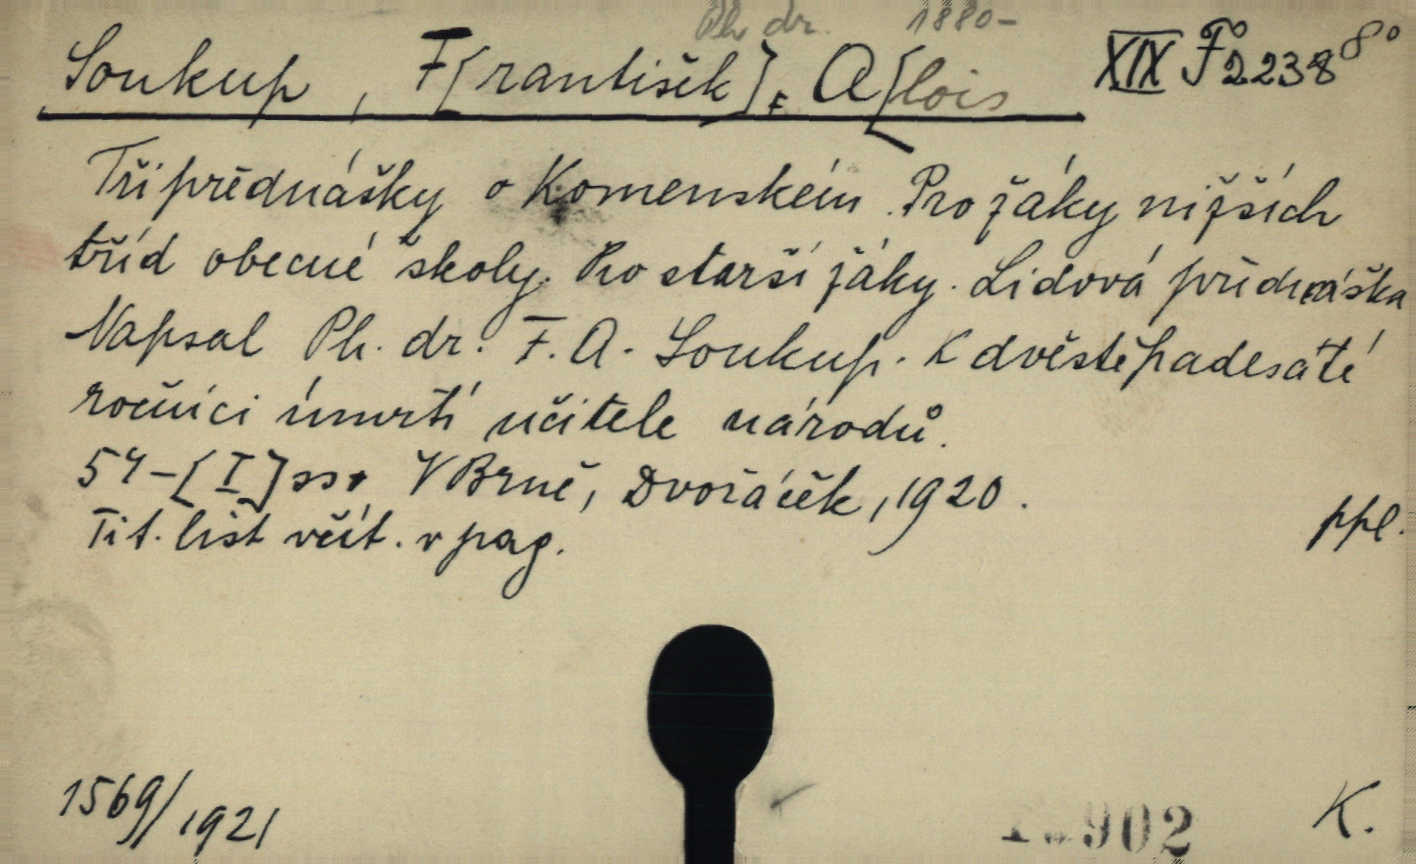 Ph dr. 1880-
Soukup, F[rantišek], A[lois XIX F 2238 8°
Tři přednášky o Komenském. Pro žáky nižších
tříd obecné školy. Pro starší žáky. Lidová přednáška
Napsal Ph. dr. F. A. Soukup. K dvěstěpadesáté
ročnici úmrtí učitele národů.
54-[I] ss. V Brně, Dvořáček, 1920.
Tit. list včít. v pag. ppl.
1569/1921 902 K.